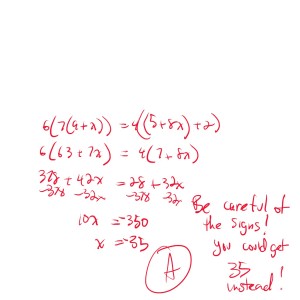 6(7(9+x)) = 4((5+8x)+2)
6(63+7x) = 4(7+8x)
378 + 42x = 28 + 32x
-378 -32x -378 -32x
10x = -350
x = -35
A
Be careful of
the signs!
You could get
35
instead!